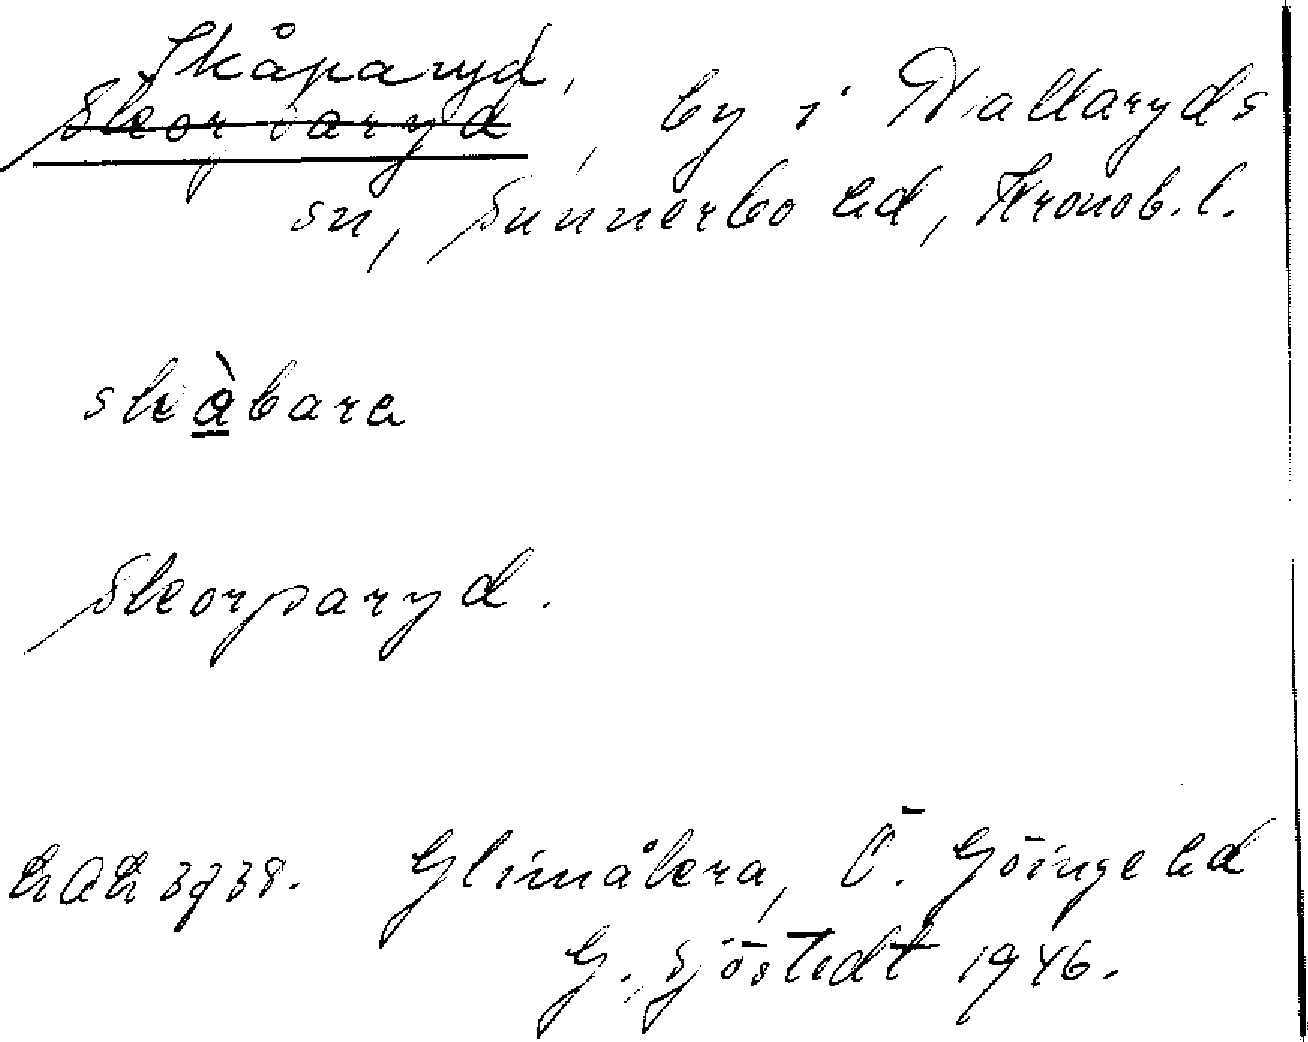 Skåparyd,
Skorparyd, by i Hallaryds
sn, Sunnerbo hd, Kronob. l.
skàbara
Skorparyd.
LAL 3938. Glimåkra, Ö. Göinge hd
G. Sjöstedt 1946.